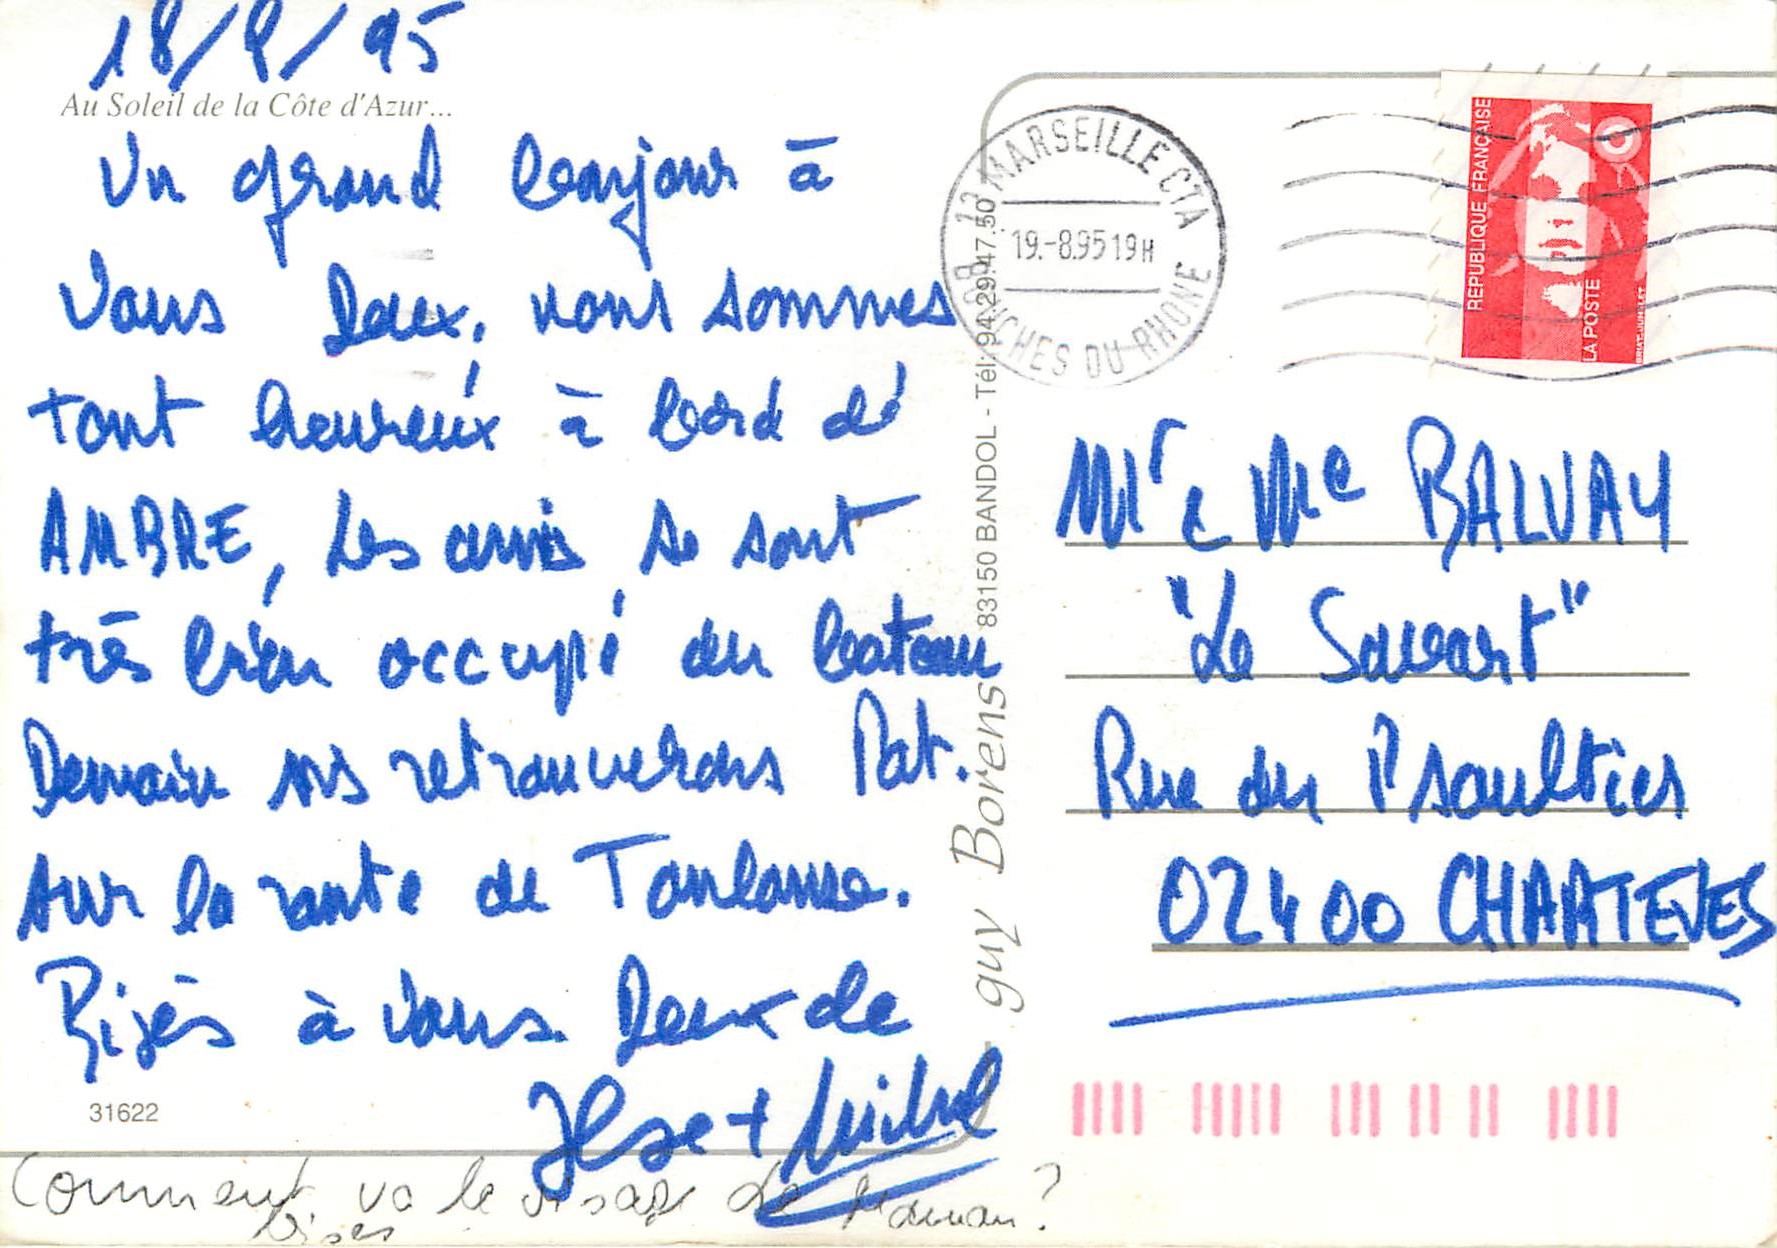 18/8/95
Au Soleil de la Côte d'Azur...
Un grand bonjour à
vous Deux, nous sommes
tout heureux à bord de
AMBRE, Les amis se sont
très bien occupé du bateau
Demain ns retrouverons Pat.
sur la route de Toulouse.
Bizès à vous Deux de
+ Michel
Comment va le visage de Maman ?
bises
31622
guy Borens 83150 BANDOL - Tél: 94.29.47.50
13 MARSEILLE CTA
19.-8.95 19H
BOUCHES DU RHONE
RÉPUBLIQUE FRANÇAISE
LA POSTE
BRIAT-JUMELET
Mr e Me BALVAY
"Le Sauvart"
Rue du Psaultier
02400 CHARTEVES